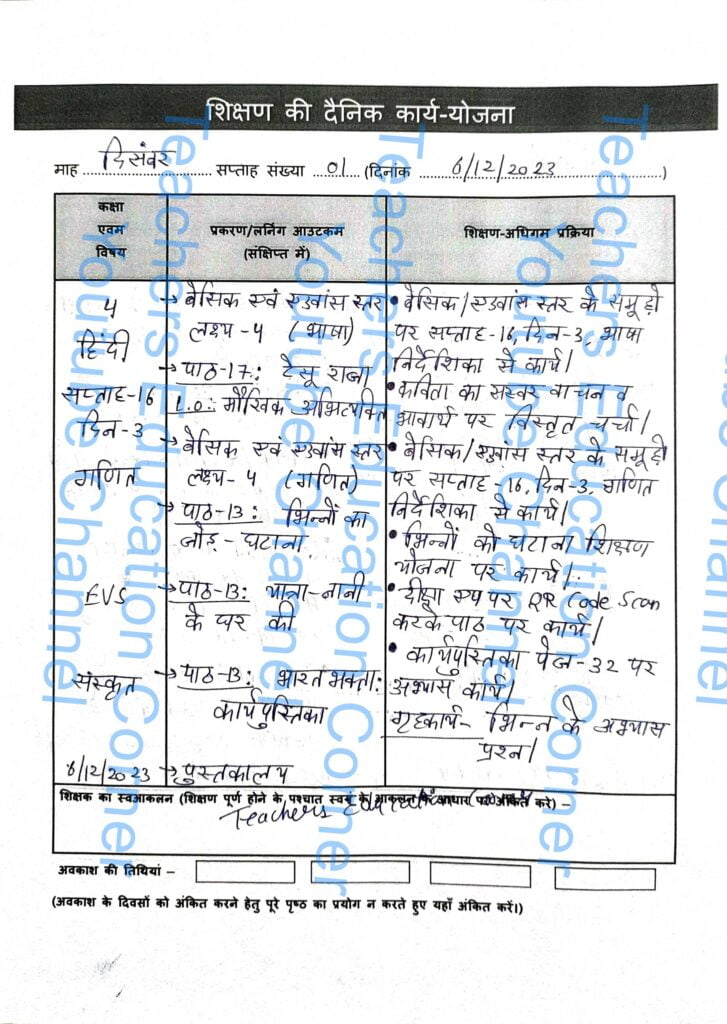 शिक्षण की दैनिक कार्य-योजना
माह दिसंबर सप्ताह संख्या 01 (दिनांक 6/12/2023)
कक्षा एवम विषय
प्रकरण/लर्निंग आउटकम (संक्षिप्त में)
शिक्षण-अधिगम प्रक्रिया
4
हिंदी
सप्ताह-16
दिन-3
→ बेसिक एवं एडवांस स्तर
लक्ष्य-4 (भाषा)
→ पाठ-17: टेसू राजा
L.O: मौखिक अभिव्यक्ति
• बेसिक/एडवांस स्तर के समूहों
पर सप्ताह-16, दिन-3, भाषा
निर्देशिका से कार्य।
• कविता का सस्वर वाचन व
भावार्थ पर विस्तृत चर्चा।
गणित
→ बेसिक एवं एडवांस स्तर
लक्ष्य-4 (गणित)
→ पाठ-13: भिन्नों का
जोड़-घटाना
• बेसिक/एडवांस स्तर के समूहों
पर सप्ताह-16, दिन-3, गणित
निर्देशिका से कार्य।
• भिन्नों को घटाना शिक्षण
योजना पर कार्य।
EVS
→ पाठ-13: यात्रा-नानी
के घर की
• दीक्षा एप पर QR Code Scan
करके पाठ पर कार्य।
संस्कृत
→ पाठ-13: भारतभक्ता:
कार्यपुस्तिका
• कार्यपुस्तिका पेज-32 पर
अभ्यास कार्य।
गृहकार्य- भिन्न के अभ्यास
प्रश्न।
6/12/2023 → पुस्तकालय
शिक्षक का स्वआकलन (शिक्षण पूर्ण होने के पश्चात स्वयं के आकलन के आधार पर अंकित करे) –
Teachers Education
अवकाश की तिथियां –
(अवकाश के दिवसों को अंकित करने हेतु पूरे पृष्ठ का प्रयोग न करते हुए यहाँ अंकित करें।)
Teachers Education Corner
Youtube Channel
Teachers Education Corner
Youtube Channel
Teachers Education Corner
Youtube Channel